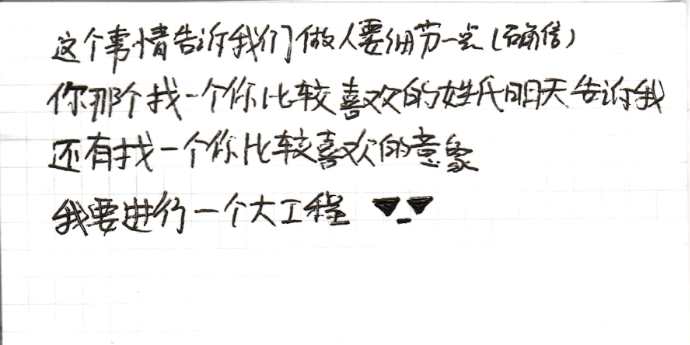 这个事情告诉我们做人要细节一点(确信)
你那个找一个你比较喜欢的姓氏明天告诉我
还有找一个你比较喜欢的意象
我要进行一个大工程 ▼_▼